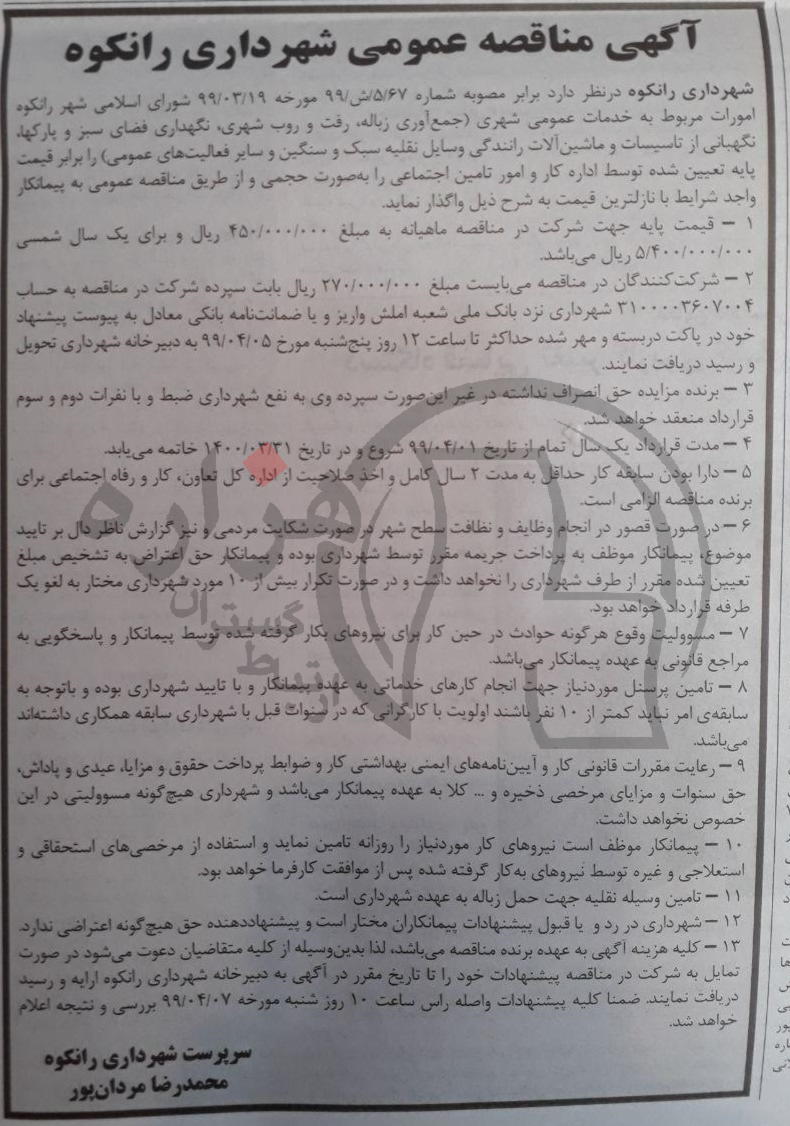 آگهی مناقصه عمومی شهرداری رانکوه
شهرداری رانکوه درنظر دارد برابر مصوبه شماره ۵/۶۷/ش/۹۹ مورخه ۹۹/۰۳/۱۹ شورای اسلامی شهر رانکوه
امورات مربوط به خدمات عمومی شهری (جمع‌آوری زباله، رفت و روب شهری، نگهداری فضای سبز و پارکها،
نگهبانی از تاسیسات و ماشین‌آلات رانندگی وسایل نقلیه سبک و سنگین و سایر فعالیت‌های عمومی) را برابر قیمت
پایه تعیین شده توسط اداره کار و امور تامین اجتماعی را به‌صورت حجمی و از طریق مناقصه عمومی به پیمانکار
واجد شرایط با نازلترین قیمت به شرح ذیل واگذار نماید.
۱ – قیمت پایه جهت شرکت در مناقصه ماهیانه به مبلغ ۴۵۰/۰۰۰/۰۰۰ ریال و برای یک سال شمسی
۵/۴۰۰/۰۰۰/۰۰۰ ریال می‌باشد.
۲ – شرکت‌کنندگان در مناقصه می‌بایست مبلغ ۲۷۰/۰۰۰/۰۰۰ ریال بابت سپرده شرکت در مناقصه به حساب
۳۱۰۰۰۰۳۶۰۷۰۰۴ شهرداری نزد بانک ملی شعبه املش واریز و یا ضمانت‌نامه بانکی معادل به پیوست پیشنهاد
خود در پاکت دربسته و مهر شده حداکثر تا ساعت ۱۲ روز پنج‌شنبه مورخ ۹۹/۰۴/۰۵ به دبیرخانه شهرداری تحویل
و رسید دریافت نمایند.
۳ – برنده مزایده حق انصراف نداشته در غیر این‌صورت سپرده وی به نفع شهرداری ضبط و با نفرات دوم و سوم
قرارداد منعقد خواهد شد.
۴ – مدت قرارداد یک سال تمام از تاریخ ۹۹/۰۴/۰۱ شروع و در تاریخ ۱۴۰۰/۰۳/۳۱ خاتمه می‌یابد.
۵ – دارا بودن سابقه کار حداقل به مدت ۲ سال کامل و اخذ صلاحیت از اداره کل تعاون، کار و رفاه اجتماعی برای
برنده مناقصه الزامی است.
۶ – در صورت قصور در انجام وظایف و نظافت سطح شهر در صورت شکایت مردمی و نیز گزارش ناظر دال بر تایید
موضوع، پیمانکار موظف به پرداخت جریمه مقرر توسط شهرداری بوده و پیمانکار حق اعتراض به تشخیص مبلغ
تعیین شده مقرر از طرف شهرداری را نخواهد داشت و در صورت تکرار بیش از ۱۰ مورد شهرداری مختار به لغو یک
طرفه قرارداد خواهد بود.
۷ – مسوولیت وقوع هرگونه حوادث در حین کار برای نیروهای بکار گرفته شده توسط پیمانکار و پاسخگویی به
مراجع قانونی به عهده پیمانکار می‌باشد.
۸ – تامین پرسنل موردنیاز جهت انجام کارهای خدماتی به عهده پیمانکار و با تایید شهرداری بوده و باتوجه به
سابقه‌ی امر نباید کمتر از ۱۰ نفر باشند اولویت با کارگرانی که در سنوات قبل با شهرداری سابقه همکاری داشته‌اند
می‌باشد.
۹ – رعایت مقررات قانونی کار و آیین‌نامه‌های ایمنی بهداشتی کار و ضوابط پرداخت حقوق و مزایا، عیدی و پاداش،
حق سنوات و مزایای مرخصی ذخیره و ... کلا به عهده پیمانکار می‌باشد و شهرداری هیچ‌گونه مسوولیتی در این
خصوص نخواهد داشت.
۱۰ – پیمانکار موظف است نیروهای کار موردنیاز را روزانه تامین نماید و استفاده از مرخصی‌های استحقاقی و
استعلاجی و غیره توسط نیروهای به‌کار گرفته شده پس از موافقت کارفرما خواهد بود.
۱۱ – تامین وسیله نقلیه جهت حمل زباله به عهده شهرداری است.
۱۲ – شهرداری در رد و یا قبول پیشنهادات پیمانکاران مختار است و پیشنهاددهنده حق هیچ‌گونه اعتراضی ندارد.
۱۳ – کلیه هزینه آگهی به عهده برنده مناقصه می‌باشد، لذا بدین‌وسیله از کلیه متقاضیان دعوت می‌شود در صورت
تمایل به شرکت در مناقصه پیشنهادات خود را تا تاریخ مقرر در آگهی به دبیرخانه شهرداری رانکوه ارایه و رسید
دریافت نمایند. ضمنا کلیه پیشنهادات واصله راس ساعت ۱۰ روز شنبه مورخه ۹۹/۰۴/۰۷ بررسی و نتیجه اعلام
خواهد شد.
سرپرست شهرداری رانکوه
محمدرضا مردان‌پور
هزاره
گستران
ارتباط